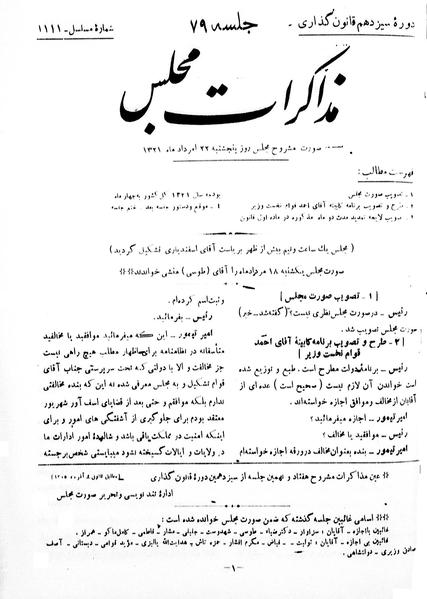 دورهٔ سیزدهم قانون گذاری -
جلسه ۷۹
شمارهٔ مسلسل - ۱۱۱۱
مذاکرات مجلس
صورت مشروح مجلس روز پنجشنبه ۲۲ امرداد ماه ۱۳۲۱
فهرست مطالب:
۱ - تصویب صورت مجلس
۲ - طرح و تصویب برنامه کابینه آقای احمد قوام نخست وزیر
۳ - تصویب لایحه تمدید مدت دو ماه مذکوره در ماده اول قانون
بودجه سال ۱۳۲۱ کل کشور به چهار ماه
۴ - موقع و دستور جلسه بعد - ختم جلسه
(مجلس یک ساعت و نیم پیش از ظهر بریاست آقای اسفندیاری تشکیل گردید)
صورت مجلس یکشنبه ۱۸ مرداد ماه را آقای (طوسی) منشی خواندند
[۱ - تصویب صورت مجلس]
رئیس - در صورت مجلس نظری نیست؟ (گفته شد - خیر)
صورت مجلس تصویب شد.
[۲ - طرح و تصویب برنامه کابینهٔ آقای احمد
قوام نخست وزیر]
رئیس - برنامهٔ دولت مطرح است. طبع و توزیع شده
است خواندن آن لازم نیست (صحیح است) عده‌ای از
آقایان از مخالف و موافق اجازه خواسته‌اند.
امیر تیمور - اجازه میفرمائید؟
رئیس - موافقید یا مخالف؟
امیر تیمور - بنده بعنوان مخالف در ورقه اجازه خواسته‌ام
و ثبت اسم کرده‌ام.
رئیس - بفرمائید.
امیر تیمور - این که میفرمائید موافقید یا مخالفید
متأسفانه در نظامنامه برای اظهار مطالب هیچ راهی نیست
جز مخالفت و الا با دولتی که تحت سرپرستی جناب آقای
قوام تشکیل و به مجلس معرفی شده نه این که بنده مخالفتی
ندارم بلکه موافقم و حتی بعد از قضایای اسف آور شهریور
معتقد بودم برای جلوگیری از آشفتگی های امور و برای
اینکه امنیت در مملکت باقی باشد و شالودهٔ امور ادارات ما
در ولایات و ایالات گسیخته نشود میبایستی شخص برجسته
عین مذاکرات مشروح هفتاد و نهمین جلسه از سیزدهمین دورهٔ قانون گذاری
ادارهٔ تند نویسی و تحریر صورت مجلس
اسامی غائبین جلسه گذشته که ضمن صورت مجلس خوانده شده است:
غائبین با اجازه - آقایان:
غائبین بی اجازه - آقایان:
- ۱ -